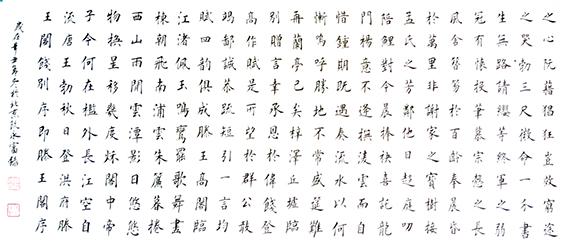 之心阮籍猖狂豈效窮途
之哭勃三尺微命一介書
生無路請纓等終軍之弱
冠有懷投筆慕宗愨之長
風舍簪笏於百齡奉晨昏
於萬里非謝家之寶樹接
孟氏之芳鄰他日趨庭叨
陪鯉對今茲捧袂喜託龍
門楊意不逢撫凌雲而自
惜鍾期既遇奏流水以何
慚嗚呼勝地不常盛筵難
再蘭亭已矣梓澤丘墟臨
別贈言幸承恩於偉餞登
高作賦是所望於群公敢
竭鄙誠恭疏短引一言均
賦四韻俱成滕王高閣臨
江渚佩玉鳴鸞罷歌舞畫
棟朝飛南浦雲朱簾暮捲
西山雨閒雲潭影日悠悠
物換星移幾度秋閣中帝
子今何在檻外長江空自
流唐王勃秋日登洪府滕
王閣餞別序即滕王閣序
歲在 於北京